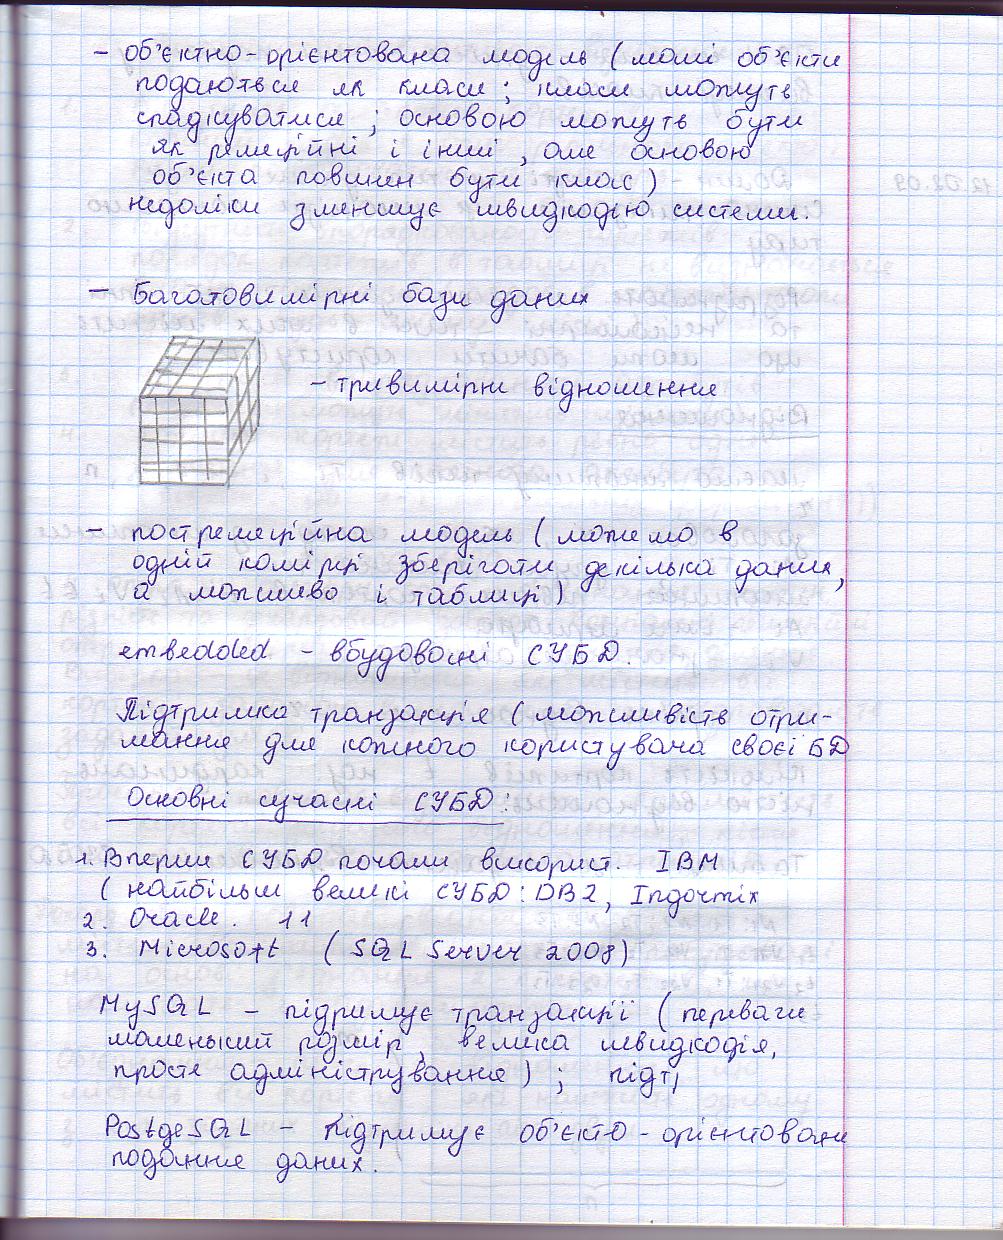 - об'єктно-орієнтована модель (самі об'єкти
подаються як класи; класи можуть
спадкуватися; основою можуть бути
як реляційні і інші, але основою
об'єкта повинен бути клас)
недоліки зменшує швидкодію системи.
- Багатовимірні бази даних
- тривимірні відношення
- постреляційна модель (можемо в
одній комірці зберігати декілька даних,
а можливо і таблиці)
embedded - вбудовані СУБД.
Підтримка транзакція (можливість отри-
мання для кожного користувача своєї БД
Основні сучасні СУБД:
1. Вперше СУБД почали використ. IBM
(найбільш великі СУБД: DB2, Informix
2. Oracle. 11
3. Microsoft (SQL Server 2008)
MySQL - підримує транзакції (переваги
маленький розмір, велика швидкодія,
просте адміністрування); підт,
PostgeSQL - підтримує об'єкто-орієнтовані
подання даних.